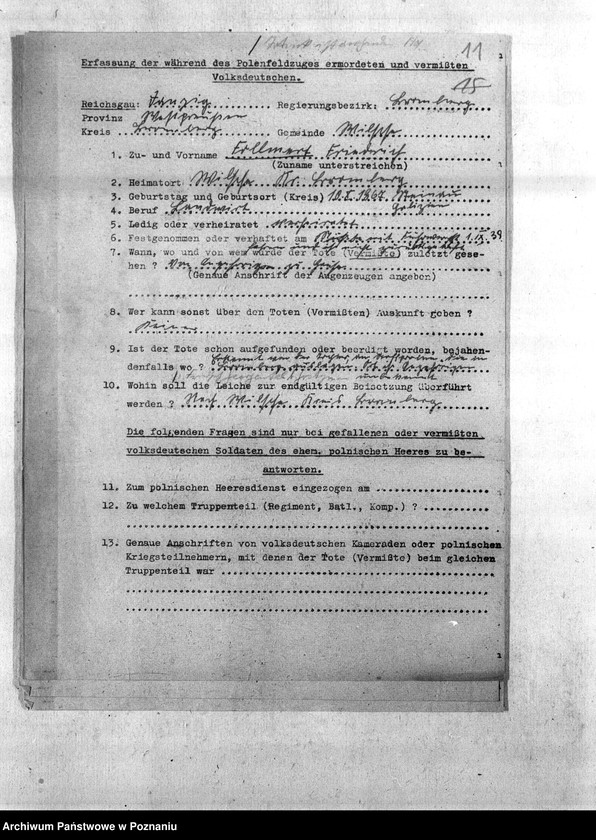 11
15
Erfassung der während des Polenfeldzuges ermordeten und vermißten
Volksdeutschen.
Reichsgau: Danzig Regierungsbezirk: Bromberg
Provinz Westpreußen
Kreis Bromberg Gemeinde Wilsche
1. Zu- und Vorname Friedrich
(Zuname unterstreichen)
2. Heimatort Wilsche Kr. Bromberg
3. Geburtstag und Geburtsort (Kreis)
4. Beruf Landwirt Galizien
5. Ledig oder verheiratet verheiratet
6. Festgenommen oder verhaftet am
7. Wann, wo und von wem wurde der Tote (Vermißte) zulötzt gese-
hen ? Von Angehörigen zu Hause
(Genaue Anschrift der Augenzeugen angeben)
8. Wer kann sonst über den Toten (Vermißten) Auskunft geben ?
Keiner
9. Ist der Tote schon aufgefunden oder beerdigt worden, bejahen-
denfalls wo ?
10. Wohin soll die Leiche zur endgültigen Beisetzung überführt
werden ? Nach Wilsche Kreis Bromberg
Die folgenden Fragen sind nur bei gefallenen oder vermißten
volksdeutschen Soldaten des ehem. polnischen Heeres zu be-
antworten.
11. Zum polnischen Heeresdienst eingezogen am
12. Zu welchem Truppenteil (Regiment, Batl., Komp.) ?
13. Genaue Anschriften von volksdeutschen Kameraden oder polnischen
Kriegsteilnehmern, mit denen der Tote (Vermißte) beim gleichen
Truppenteil war
Archiwum Państwowe w Poznaniu